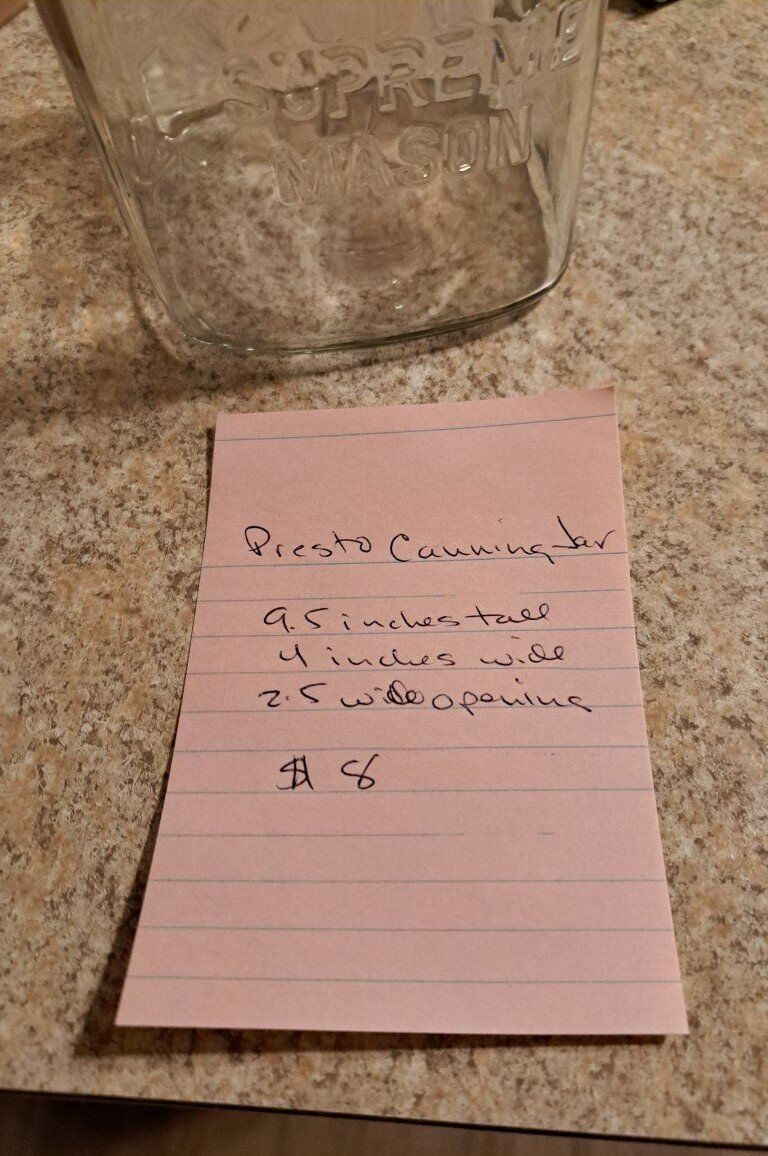 SUPREME
MASON
Presto Canning Jar
9.5 inches tall
4 inches wide
2.5 wide opening
$ 8